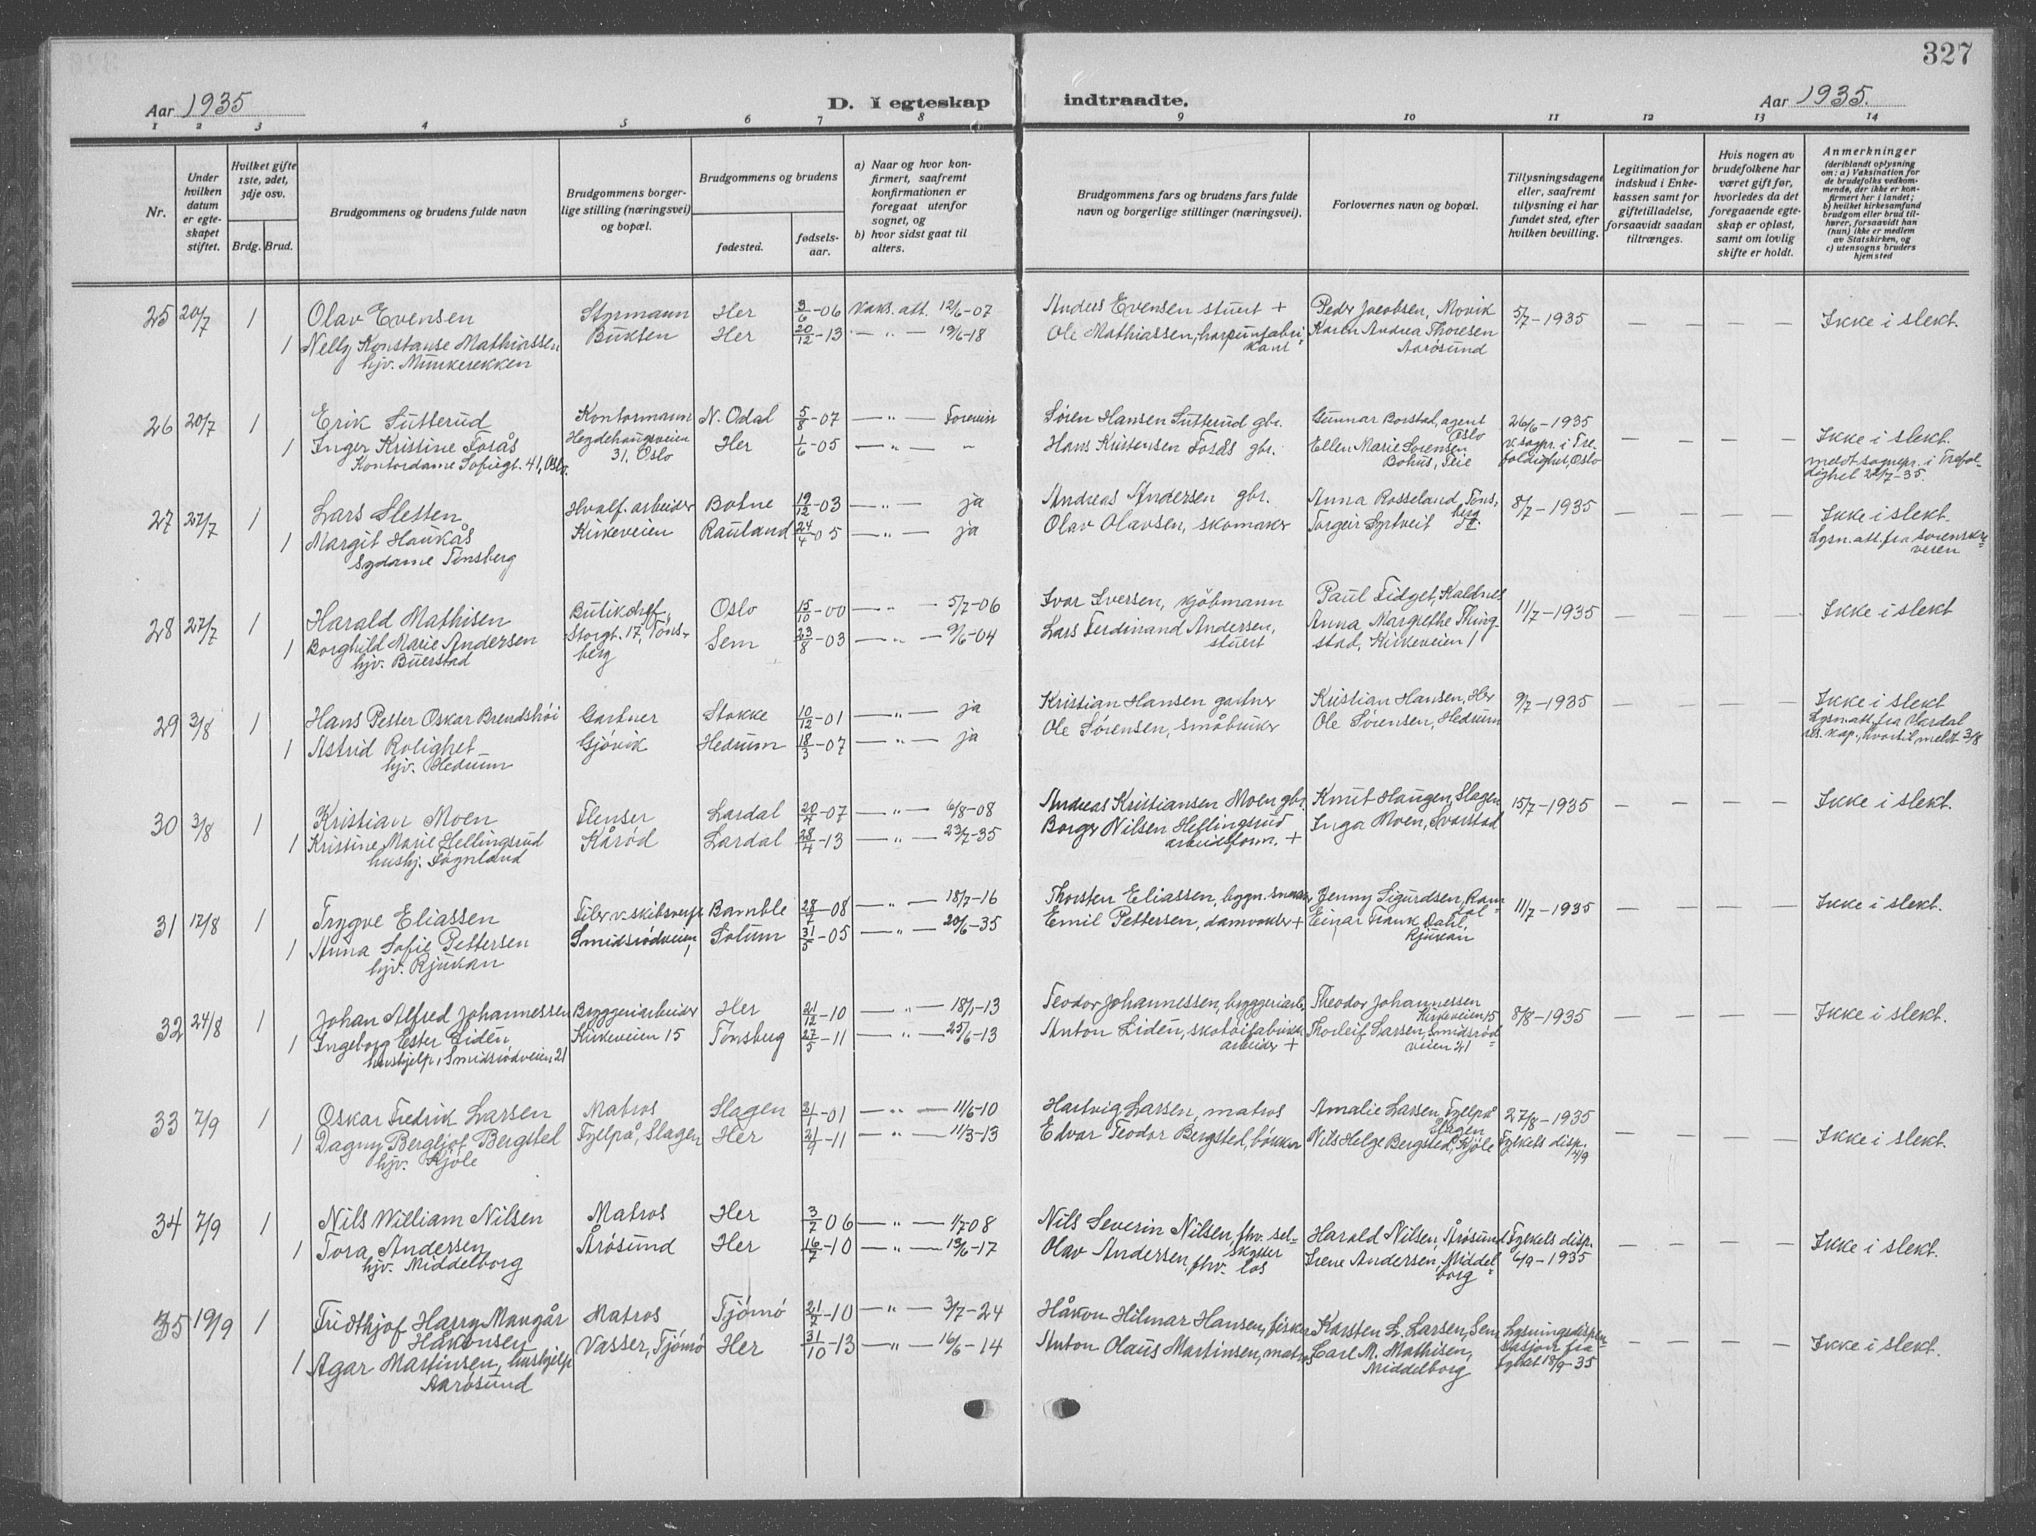 327
Aar 1935
D. I egteskap
indtraadte.
Aar 1935.
1 2 3 4 5 6 7 8 9 10 11 12 13 14
Nr.
Under hvilken datum er egteskapet stiftet.
Hvilket gifte 1ste, 2det, 3dje osv.
Brdg. Brud.
Brudgommens og brudens fulde navn
Brudgommens borgerlige stilling (næringsvei) og bopæl.
Brudgommens og brudens
fødested.
fødselsaar.
a) Naar og hvor konfirmert, saafremt konfirmationen er foregaat utenfor sognet, og
b) hvor sidst gaat til alters.
Brudgommens fars og brudens fars fulde navn og borgerlige stillinger (næringsvei).
Forlovernes navn og bopæl.
Tillysningsdagene eller, saafremt tillysning ei har fundet sted, efter hvilken bevilling.
Legitimation for indskud i Enkekassen samt for giftetilladelse, forsaavidt saadan tiltrænges.
Hvis nogen av brudefolkene har været gift før, hvorledes da det foregaaende egteskap er opløst, samt om lovlig skifte er holdt.
Anmerkninger
(deriblandt oplysning om: a) Vaksination for de brudefolks vedkommende, der ikke er konfirmert her i landet; b) hvilket kirkesamfund brudgom eller brud tilhører, forsaavidt han (hun) ikke er medlem av Statskirken, og c) utensogns bruders hjemsted
25 20/7 1 Olav Evensen Styrmann Her 3/6-06 Vaks. att. 12/6-07 Anders Evensen stuert + Peder Jacobsen, Movik 5/7-1935 — — — Ikke i slekt.
1 Nelly Konstanse Mathiassen Buksten Her 20/12-13 — „ — 19/6-18 Ole Mathiassen, harpunfabrikant Karen Andrea Thoresen
hjv. Munkerekken Aarøsund
26 20/7 1 Erik Sutterud Kontormann N. Odal 5/8-07 — „ — Søren Hansen Sutterud gbr. Gunnar Borstad, agent Oslo 26/6-1935
1 Inger Kristine Fosås Hegdehaugsveien Her 1/6-05 — „ — Hans Kristensen Fosås gbr. Ellen Marie Sørensen v. sogpr. i Tre- — — — Ikke i slekt.
Kontordame Sofiegt. 41, Oslo. 31, Oslo Bohus, Teie foldighet, Oslo meldt sognepr. i Trefoldighet 22/7-35.
27 27/7 1 Lars Sletten Hvalf. arbeider Botne 12/12-03 — „ — ja Andreas Andersen gbr. Anna Rosseland, Tønsberg 8/7-1935 — — — Ikke i slekt.
1 Margit Haukås Kirkeveien Rauland 24/4-05 — „ — ja Olav Olavsen, skomaker Torgeir Syrtveit Lysn. att. fra sorenskriveren
Sydame Tønsberg
28 27/7 1 Harald Mathisen Butikchef, Oslo 15/10-00 — „ — 5/7-06 Ivar Iversen, kjøbmann Paul Fidget, Kaldnes 11/7-1935 — — — Ikke i slekt
1 Borghild Marie Andersen Storgt. 17, Tønsberg Sem 23/8-03 — „ — 9/6-04 Lars Ferdinand Andersen, stuert Anna Margrethe Thingstad, Kirkeveien 1
hjv. Buerstad
29 3/8 1 Hans Petter Oskar Brendshøi Gartner Stokke 10/12-01 — „ — ja Kristian Hansen gartner Kristian Hansen, Her 9/7-1935 — — — Ikke i slekt
1 Astrid Rolighet Gjøvik Hedrum 18/3-07 — „ — ja Ole Sørensen, småbruker Ole Sørensen, Hedrum Lysn. att. fra Lardal res. kap., hvortil meldt 3/8
hjv. Hedrum
30 3/8 1 Kristian Moen Flenser Lardal 20/4-07 — „ — 6/8-08 Andreas Kristiansen Moen gbr. Knut Haugen, Slagen 15/7-1935 — — — Ikke i slekt.
1 Kristine Marie Hellingsrud Kårød Lardal 28/4-13 — „ — 23/7-35 Borger Nilsen Hellingsrud arbeidsform. + Inga Moen, Svarstad
hushj. Fognland
31 12/8 1 Trygve Eliassen Filer v. skibsverft Bamble 28/7-08 — „ — 18/7-16 Thorsten Eliassen, bygn. snekker Jenny Sigurdsen, Ramdal 11/7-1935 — — — Ikke i slekt.
1 Anna Sofie Pettersen Smidsrødveien, Solum 31/5-05 — „ — 20/6-35 Emil Pettersen, damvokter + Einar Frank Dahl, Rjukan
hjv. Rjukan
32 24/8 1 Johan Alfred Johannessen Bryggeriarbeider Her 21/12-10 — „ — 18/1-13 Teodor Johannessen, bryggeriarb. Theodor Johannessen Kirkeveien 15 8/8-1935 — — — Ikke i slekt.
1 Ingeborg Ester Lidén Kirkeveien 15 Tønsberg 27/5-11 — „ — 25/6-13 Anton Lidén, skotøifabrikkarbeider + Thorleif Larsen, Smidsrødveien 21
hushjelp, Smidsrødveien 21
33 7/9 1 Oskar Fredrik Larsen Matros Slagen 21/1-01 — „ — 11/6-10 Hartvig Larsen, matros Amalie Larsen, Fyllpå Slagen 27/8-1935
1 Dagny Bergljot Bergsted Fyllpå, Slagen Her 21/1-11 — „ — 11/3-13 Edvar Teodor Bergsted, bøkker Nils Helge Bergsted, Kjøle Fylkets disp. 4/9 — — — Ikke i slekt.
hjv. Kjøle
34 7/9 1 Nils William Nilsen Matros Her 3/7-06 — „ — 1/7-08 Nils Severin Nilsen, fhv. selskytter Harald Nilsen, Årøsund Fylkets disp.
1 Tora Andersen Årøsund Her 16/7-10 — „ — 13/6-17 Olav Andersen, fhv. los Irene Andersen, Middelborg 6/9-1935 — — — Ikke i slekt.
hjv. Middelborg
35 19/9 1 Fridthjof Harry Mangår Håkonsen Matros Tjømø 21/7-10 — „ — 3/7-24 Håkon Hilmar Hansen, fisker Karsten L. Larsen, Sem Lysningsdispensasjon fra
1 Agar Martinsen, hushjelp Vasser, Tjømø Her 31/10-13 — „ — 16/6-14 Anton Olaus Martinsen, matros Carl M. Mathisen, Middelborg fylket 18/9-35 — — — Ikke i slekt.
Aarøsund